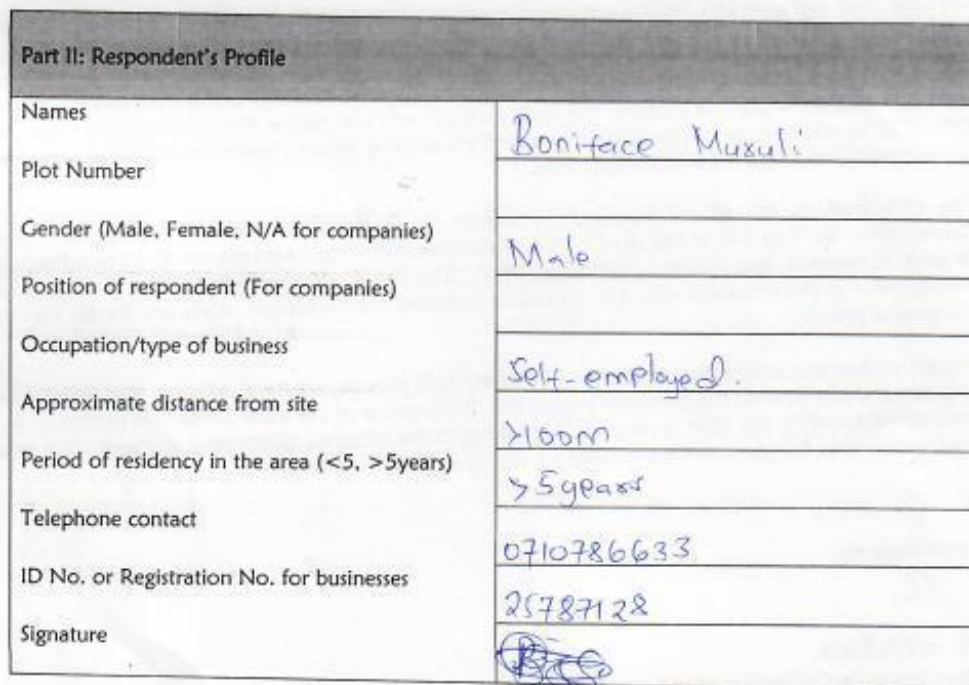 Part II: Respondent's Profile
Names
Boniface Musuli
Plot Number
Gender (Male, Female, N/A for companies)
Male
Position of respondent (For companies)
Occupation/type of business
Self-employed.
Approximate distance from site
>100m
Period of residency in the area (<5, >5years)
>5years
Telephone contact
0710786633
ID No. or Registration No. for businesses
25787128
Signature